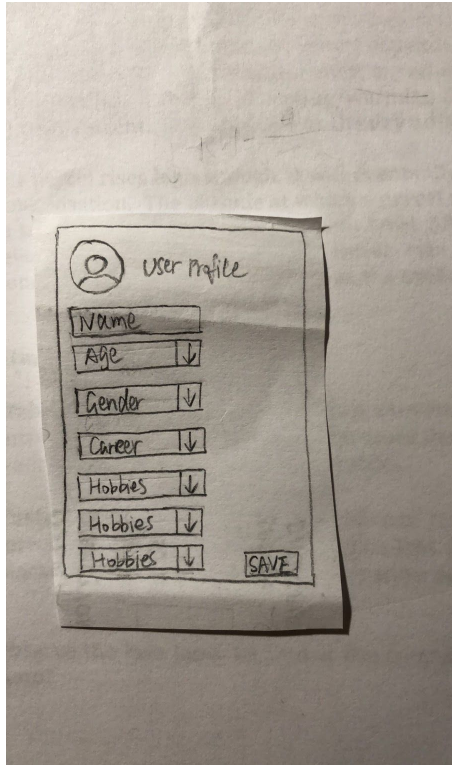 User Profile
Name
Age
Gender
Career
Hobbies
Hobbies
Hobbies
SAVE